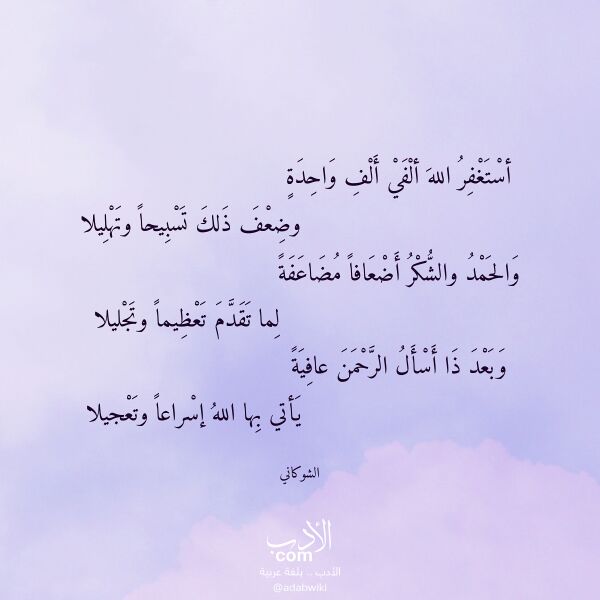 أسْتَغْفِرُ اللهَ ألْفَيْ أَلْفِ وَاحِدَةٍ
وضِعْفَ ذَلكَ تَسْبِيحاً وتَهْلِيلا
وَالحَمْدُ والشُّكْرُ أَضْعَافاً مُضَاعَفَةً
لِما تَقَدَّمَ تَعْظِيماً وتَجْليلا
وَبَعْدَ ذَا أَسْأَلُ الرَّحْمَنَ عافِيَةً
يَأتي بِها اللهُ إسْراعاً وتَعْجيلا
الشوكاني
الأدب
com
الأدب .. بلغة عربية
@adabwiki